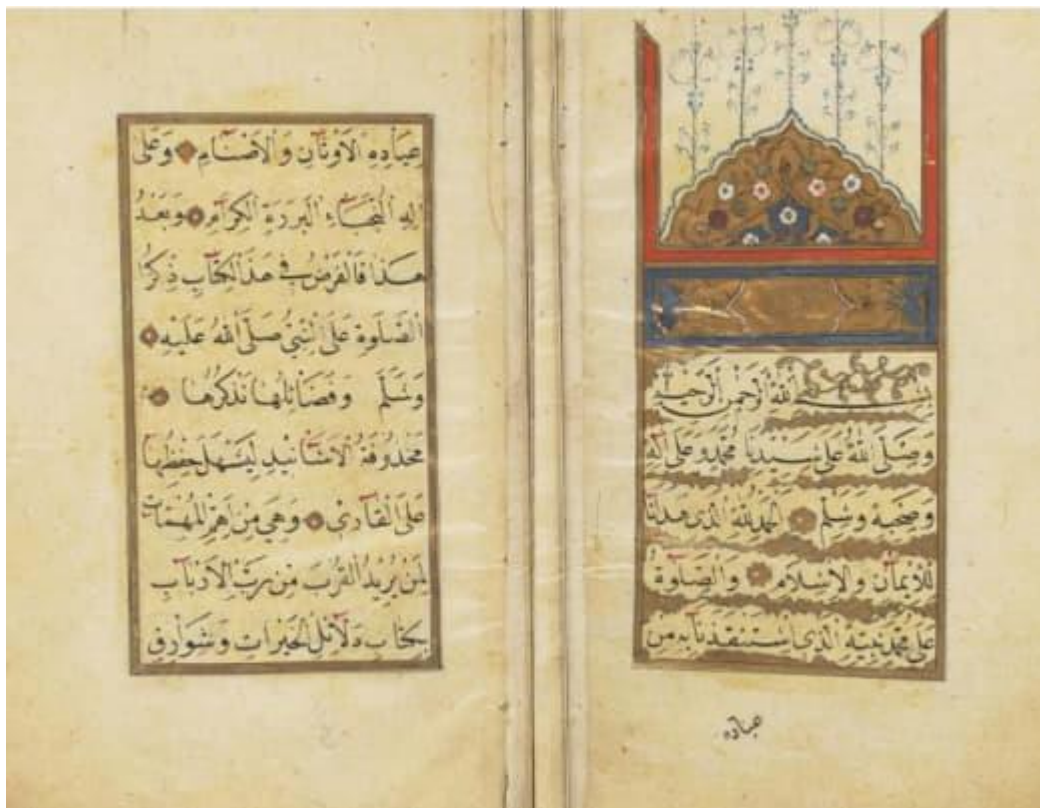 بِسْمِ اللّٰهِ الرَّحْمٰنِ الرَّحِيمِ
وَصَلَّى اللّٰهُ عَلٰى سَيِّدِنَا مُحَمَّدٍ وَعَلٰى اٰلِهِ
وَصَحْبِهِ وَسَلَّمَ اَلْحَمْدُ لِلّٰهِ الَّذِى هَدٰينَا
لِلْاِيمَانِ وَالْاِسْلَامِ وَالصَّلٰوةُ
عَلٰى مُحَمَّدٍ نَبِيِّهِ الَّذِى اسْتَنْقَذَنَا بِهِ مِنْ
عباده
عِبَادِهِ الْاَوْثَانِ وَالْاَصْنَامِ وَعَلٰى
اٰلِهِ النُّجَبَاءِ الْبَرَرَةِ الْكِرَامِ وَبَعْدُ
هٰذَا فَالْغَرَضُ فِى هٰذَا الْكِتَابِ ذِكْرُ
الصَّلٰوةِ عَلَى النَّبِىِّ صَلَّى اللّٰهُ عَلَيْهِ
وَسَلَّمَ وَفَضَائِلُهَا نَذْكُرُهَا
مَحْذُوفَةَ الْاَسَانِيدِ لِيَسْهُلَ حِفْظُهَا
عَلَى الْقَارِئِ وَهِىَ مِنْ اَهَمِّ الْمُهِمَّاتِ
لِمَنْ يُرِيدُ الْقُرْبَ مِنْ رَبِّ الْاَرْبَابِ
بِكِتَابِ دَلَائِلِ الْخَيْرَاتِ وَشَوَارِقِ